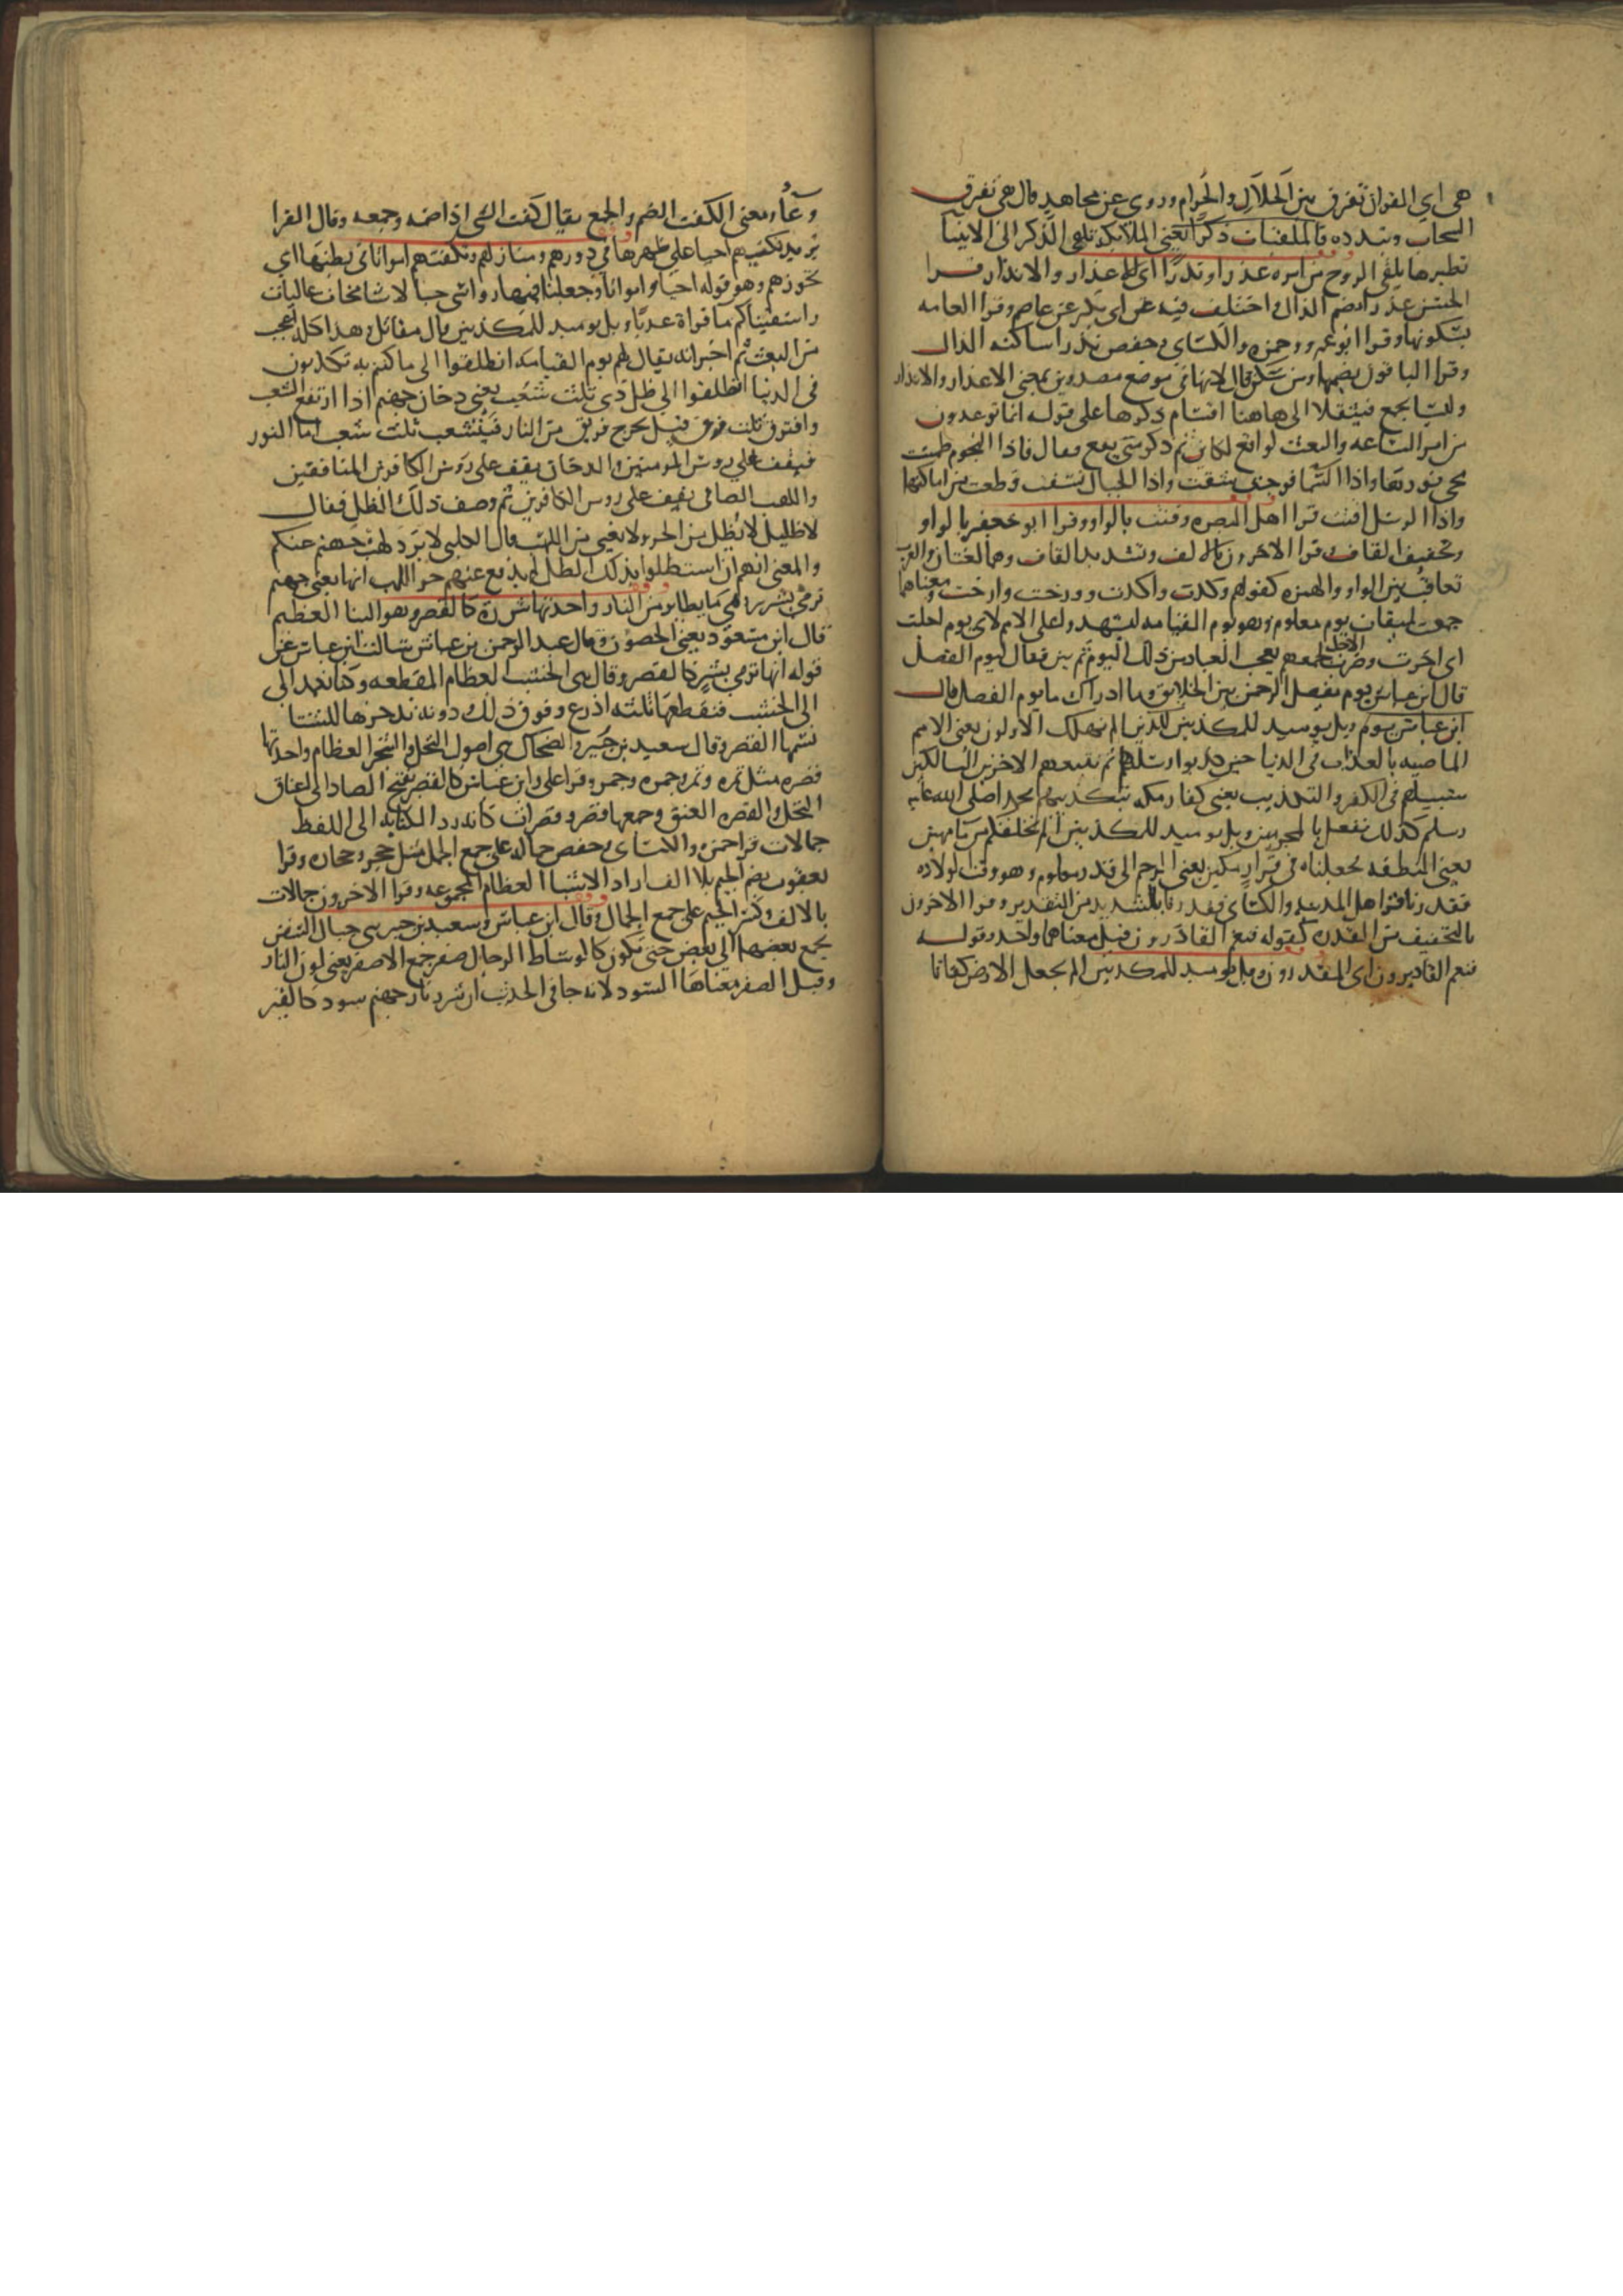 هي اي القران تفرق بين الحلال والحرام وروي عن مجاهد قال هي تفرق
السحاب وتبدده فالملقيات ذكرا يعني الملائكة تلقي الذكر الى الانبيا
نظيرها يلقي الروح من امره عذرا او نذرا اي للاعذار والانذار قرا
الحسن عذرا بضم الذال واختلف فيه عن ابي بكر عن عاصم وقرا العامه
بسكونها وقرا ابو عمرو وحمزه والكساي وحفص نذرا ساكنه الذال
وقرا الباقون بضمها ومن سكن قال لانها في موضع مصدرين بمعنى الاعذار والانذار
وليسا بجمع فيثقلا الى هاهنا اقسام ذكرها على قوله انما توعدون
من امر الساعه والبعث لواقع لكاين ثم ذكر متى يقع فقال فاذا النجوم طمست
محي نورها واذا السما فرجت شقت واذا الجبال نسفت قطعت من اماكنها
واذا الرسل اقتت قرا اهل البصره وقتت بالواو وقرا ابو جعفر بالواو
وتخفيف القاف وقرا الاخرون بالالف وتشديد القاف وهما لغتان والعرب
تعاقب بين الواو والهمزه كقولهم وكدت واكدت وورخت وارخت ومعناهما
جمعت لميقات يوم معلوم وهو يوم القيامه ليشهدوا على الامم لاي يوم اجلت
اي اخرت وضرب الاجل لجمعهم يعجب العباد من ذلك اليوم ثم بين فقال ليوم الفصل
قال ابن عباس يوم يفصل الرحمن بين الخلايق وما ادراك ما يوم الفصل قال
ويل يوميذ للمكذبين الم نهلك الاولون يعني الامم
الماضيه بالعذاب في الدنيا حين كذبوا رسلهم ثم نتبعهم الاخرين السالكين
سبيلهم في الكفر والتكذيب يعني كفار مكه بتكذيبهم محمدا صلى الله عليه
وسلم كذلك نفعل بالمجرمين ويل يوميذ للمكذبين الم نخلقكم من ما مهين
يعني النطفه فجعلناه في قرار مكين يعني الرحم الى قدر معلوم وهو وقت الولاده
فقدرنا قرا اهل المدينه والكساي فقدرنا بالتشديد من التقدير وقرا الاخرون
بالتخفيف من القدره كقوله فنعم القادرون قيل معناهما واحد وقوله
فنعم القادرون اي المقدرون ويل يوميذ للمكذبين الم نجعل الارض كفاتا
وعا ومعنى الكفت الضم والجمع يقال كفت الشي اذا ضمه وجمعه وقال الفرا
يريد تكفتهم احيا على ظهرها في دورهم ومنازلهم وتكفتهم امواتا في بطنها اي
تحوزهم وهو قوله احيا وامواتا وجعلنا فيها رواسي جبالا شامخات عاليات
واسقيناكم ما فراتا عذبا ويل يوميذ للمكذبين قال مقاتل وهذا كله اعجب
من البعث ثم اخبر انه يقال لهم يوم القيامه انطلقوا الى ما كنتم به تكذبون
في الدنيا انطلقوا الى ظل ذي ثلث شعب يعني دخان جهنم اذا ارتفع انشعب
وافترق ثلث فرق قيل يخرج فريق من النار فيتشعب ثلث شعب اما النور
فيقف على روس المومنين والدخان يقف على روس الكافرين المنافقين
واللهب الصافي يقف على روس الكافرين ثم وصف ذلك الظل فقال
لا ظليل لا يظل من الحر ولا يغني من اللهب قال الكلبي لا يرد لهب جهنم عنكم
والمعنى انهم ان استظلوا بذلك الظل لم يدفع عنهم حر اللهب انها يعني جهنم
ترمي بشرر هي ما يطاير من النار واحدتها شررة كالقصر وهو البنا العظيم
قال ابن مسعود يعني الحصون وقال عبد الرحمن بن عباس سالت ابن عباس عن
قوله انها ترمي بشرر كالقصر وقال هي الخشب العظام المقطعه وكنا نعمد الى
الى الخشب فنقطعها ثلثه اذرع وفوق ذلك ودونه ندخرها للشتا
نسميها القصر وقال سعيد بن جبير والضحاك هي اصول النخل والشجر العظام واحدتها
قصره مثل تمره وتمر وجمره وجمر وقرا علي وابن عباس كالقصر بفتح الصاد الى اعناق
النخل والقصره العنق وجمعها قصر وقصرات كانه رد الكنايه الى اللفظ
جمالات قرا حمزه والكساي وحفص جماله على جمع الجمل مثل حجر وحجاره وقرا
يعقوب بضم الجيم بلا الف اراد الاشيا العظام المجموعه وقرا الاخرون جمالات
بالالف وكسر الجيم على جمع الجمال وقال ابن عباس وسعيد بن جبير هي حبال السفن
يجمع بعضها الى بعض حتى تكون كاوساط الرجال صفر جمع الاصفر يعني لون النار
وقيل الصفر معناها السود لانه جا في الحديث ان شرر نار جهنم سود كالقير